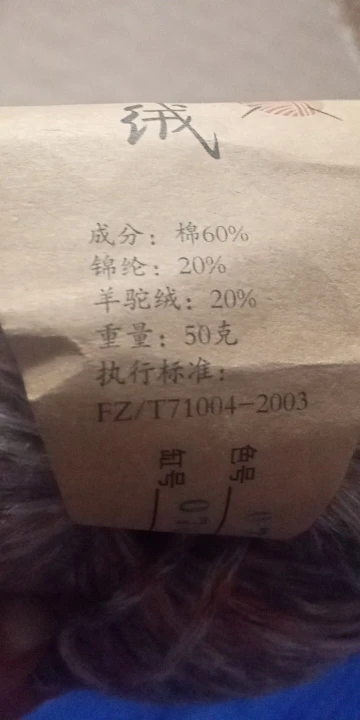 绒
成分：棉60%
锦纶：20%
羊驼绒：20%
重量：50克
执行标准：
FZ/T71004-2003
色号
缸号